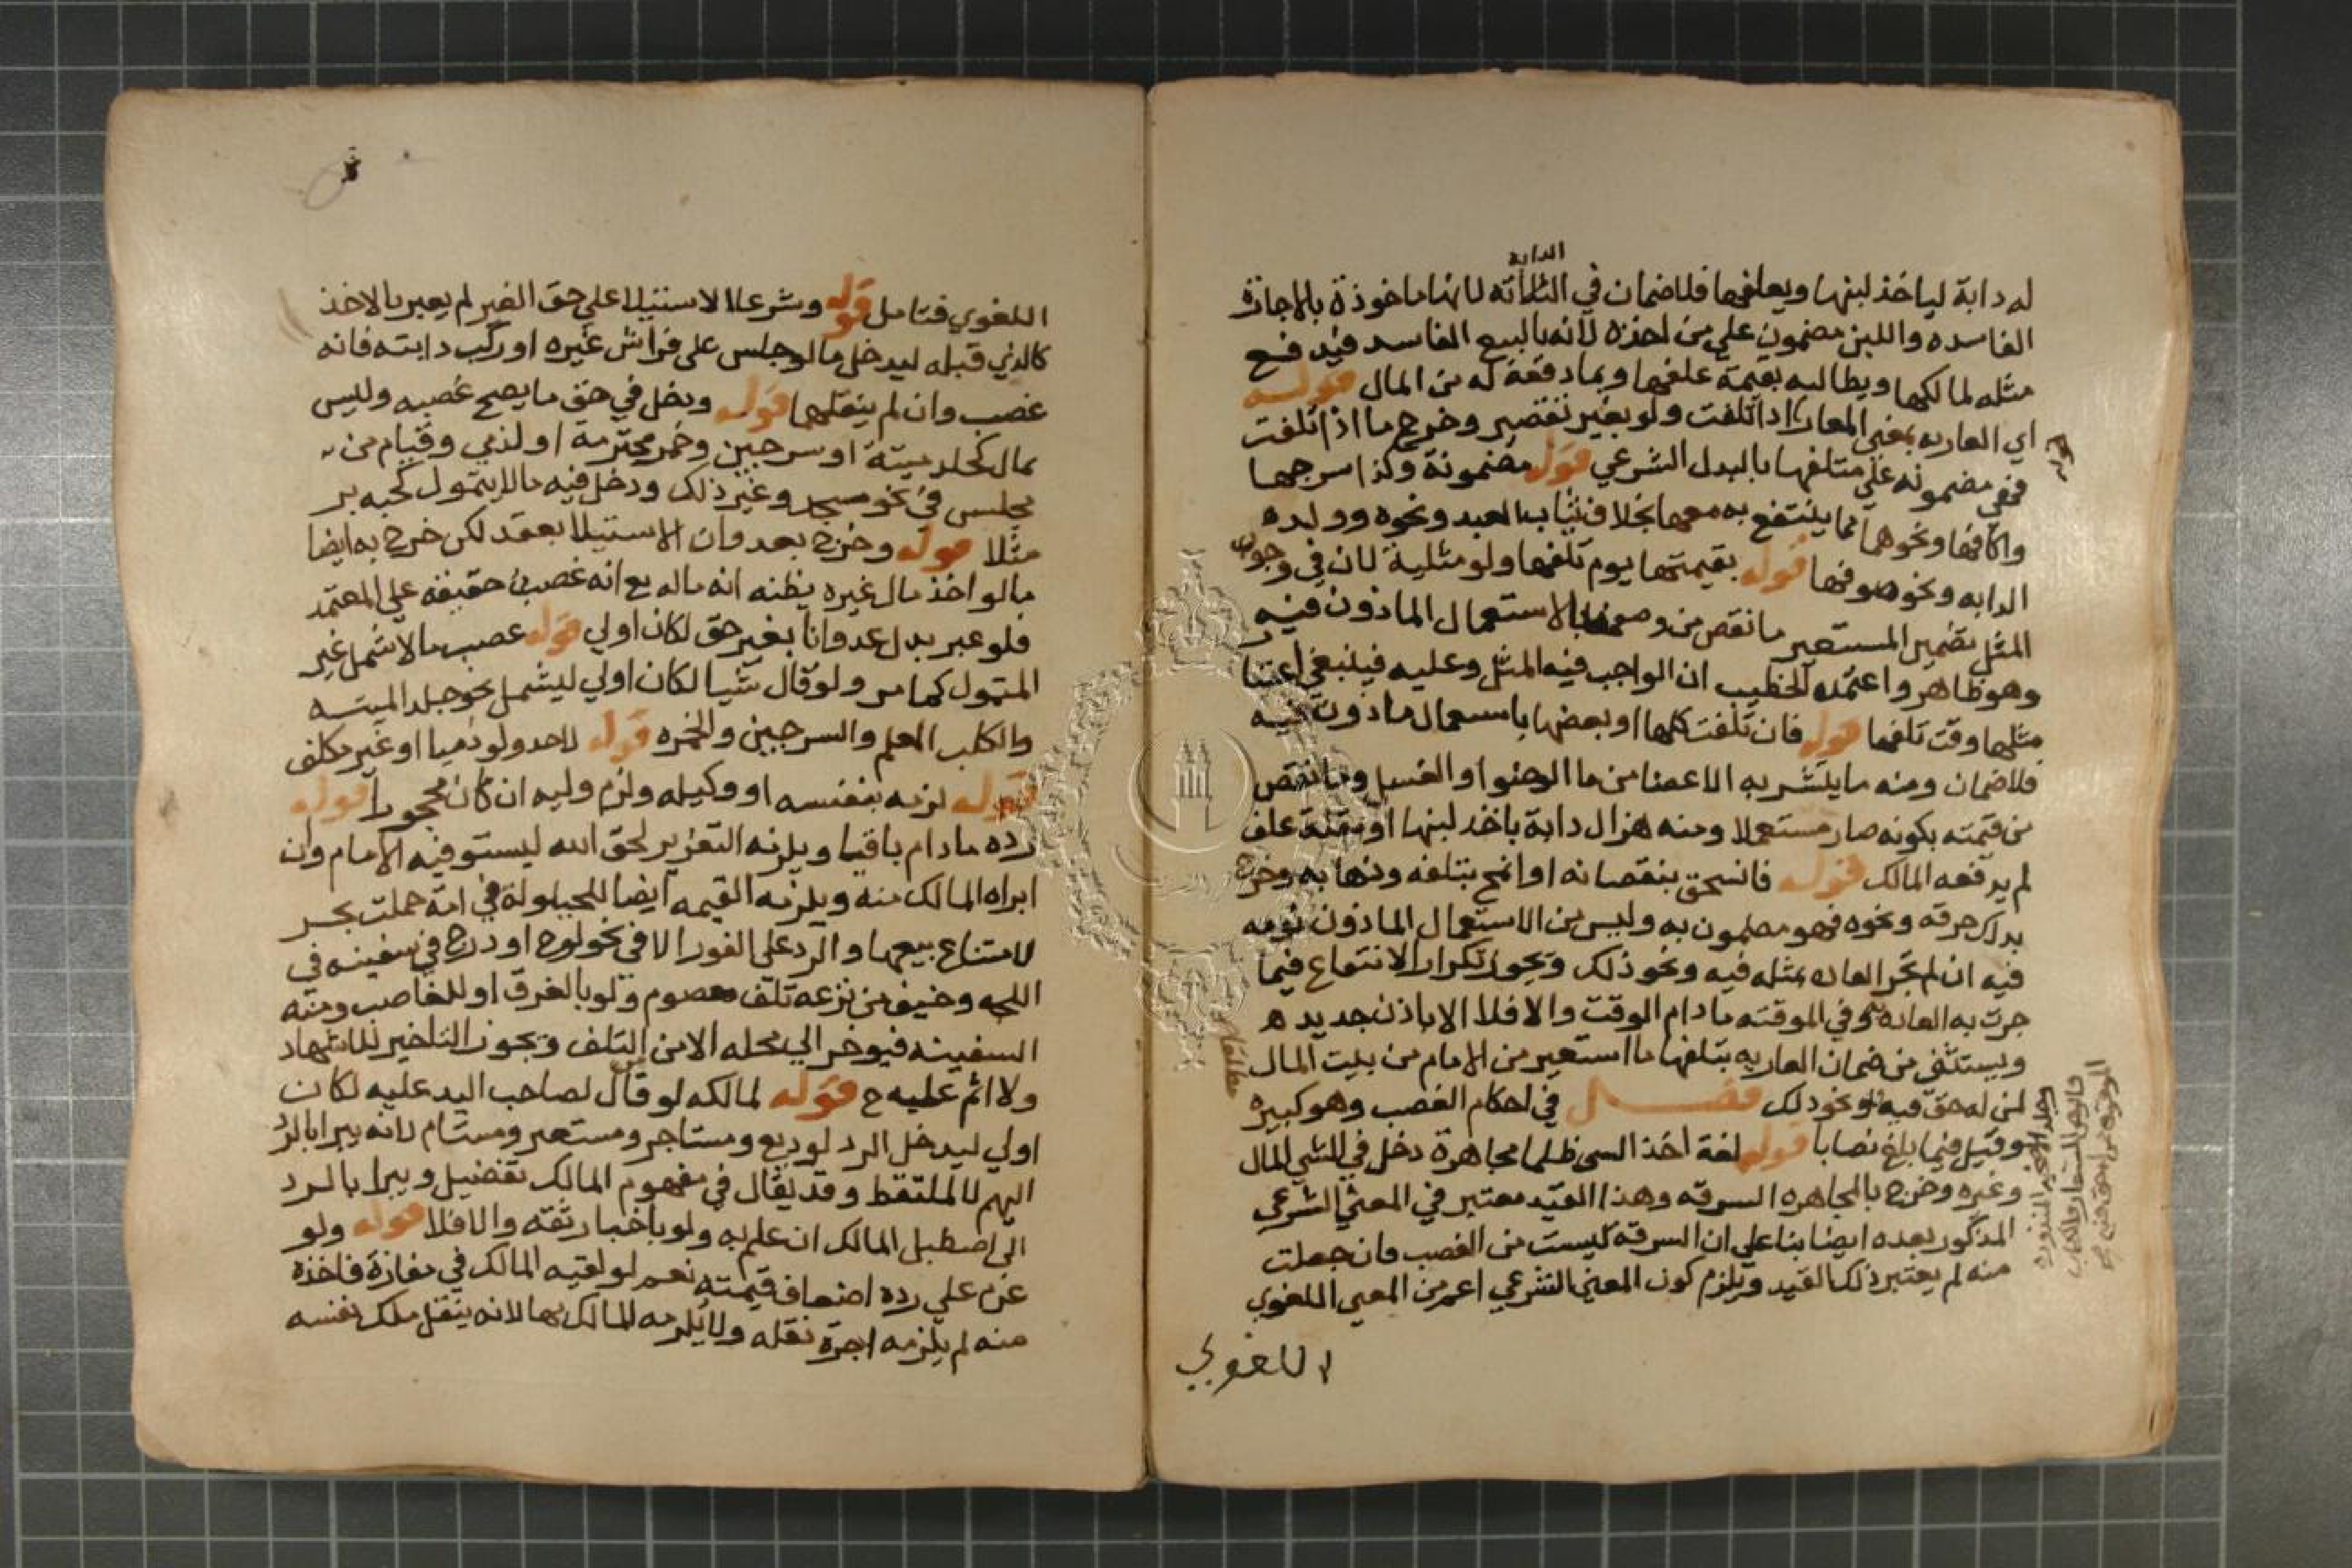 الدابة
له دابة لياخذ لبنها ويعلفها فلا ضمان في لانها ماخوذة بالاجازة
الفاسده واللبن مضمون على من اخذه لانه بالبيع الفاسد فيدفع
مثله لمالكها ويطالبه بقيمة علفها وبما دفعه له من المال قوله
اي العاريه بمعنى المعار اذا تلفت ولو بغير تقصير وخرج ما اذا تلفت
فهي مضمونه على متلفها بالبدل الشرعي قوله مضمونة وكذا سرجها
واكافها ونحوهما مما ينتفع به معها بخلاف ثياب العبد ونحوه وولده
الدابه ونحو صوفها قوله بقيمتها يوم تلفها ولو مثلية لان في وجوب
المثل تضمين المستعير ما نقص من وصفها بالاستعمال الماذون فيه
وهو ظاهر واعتمد الخطيب ان الواجب فيه المثل وعليه فينبغي اعتبار
مثلها وقت تلفها قوله فان تلفت كلها او بعضها باستعمال ماذون فيه
فلا ضمان ومنه ما ينشر به الاعضا من ما الوضوا والغسل وما نقص
من قيمته بكونه صار مستعملا ومنه هزال دابة باخذ لبنها او بقلة علف
لم يدفعه المالك قوله فانسحق بنقصانه او انمحق بتلفه وذهابه وخرج
بذلك حرقه ونحوه فهو مضمون به وليس من الاستعمال الماذون نومه
فيه ان لم تجر العاده بمثله فيه ونحو ذلك ويجوز تكرار الانتفاع فيما
جرت به العادة وفي الموقته ما دام الوقت والا فلا الا باذن جديد
ويستثنى من ضمان العاريه بتلفها ما استعير من الامام من بيت المال
لمن له حق فيه ونحو ذلك فصل في احكام الغصب وهو كبيره
وقيل فيما بلغ نصابا قوله لغة اخذ الشي ظلما مجاهرة دخل في الشي المال
وغيره وخرج بالمجاهره السرقه وهذا القيد معتبر في المعنى الشرعي
المذكور بعده ايضا بنا على ان السرقه ليست من الغصب فان جعلت
منه لم يعتبر ذلك القيد ويلزم كون المعنى الشرعي اعم من المعنى اللغوي
اللغوي
اللغوي فتامل قوله وشرعا الاستيلا على حق الغير لم يعبر بالاخذ
كالذي قبله ليدخل ما لو جلس على فراش غيره او ركب دابته فانه
غصب وان لم ينقلها قوله ودخل في حق ما يصح غصبه وليس
بمال كجلد ميتة او سرجين وخمر محترمة او لذمي وقيام من
مجلس في نحو مسجد وغير ذلك ودخل فيه ما لا يتمول كحبه بر
مثلا قوله وخرج بعدوان الاستيلا بعقد لكن خرج به ايضا
ما لو اخذ مال غيره يظنه انه ماله مع انه غصب حقيقة على المعتمد
فلو عبر بدل عدوانا بغير حق لكان اولى قوله غصب مالا شمل غير
المتمول كما مر ولو قال شيا لكان اولى ليشمل نحو جلد الميته
والكلب المعلم والسرجين والخمره قوله لاحد ولو ذميا او غير مكلف
قوله لزمه بنفسه او وكيله ولزم وليه ان كان محجورا قوله
رده ما دام باقيا ويلزمه التعزير لحق الله ليستوفيه الامام وان
ابراه المالك منه ويلزمه القيمه ايضا للحيلولة في امة حملت بحر
لامتناع بيعها والرد على الفور الا في نحو لوح ادرج في سفينه في
اللجه وخيف من نزعه تلف معصوم ولو بالغرق او للغاصب ومنه
السفينه فيوخر الي محله الامن من التلف ويجوز التاخير للاشهاد
ولا اثم عليه ح قوله لمالكه لو قال لصاحب اليد عليه لكان
اولى ليدخل الرد لوديع ومستاجر ومستعير ومستام لانه يبرا بالرد
اليهم لا لملتقط وقد يقال في مفهوم المالك تفضيل ويبرا بالرد
الى اصطبل المالك ان علم به ولو باخبار ثقه والا فلا قوله ولو
غرم على رده اضعاف قيمته نعم لو لقيه المالك في مفازة فاخذه
منه لم يلزمه اجرة نقله ولا يلزمه للمالك بها لانه ينقل ملك نفسه